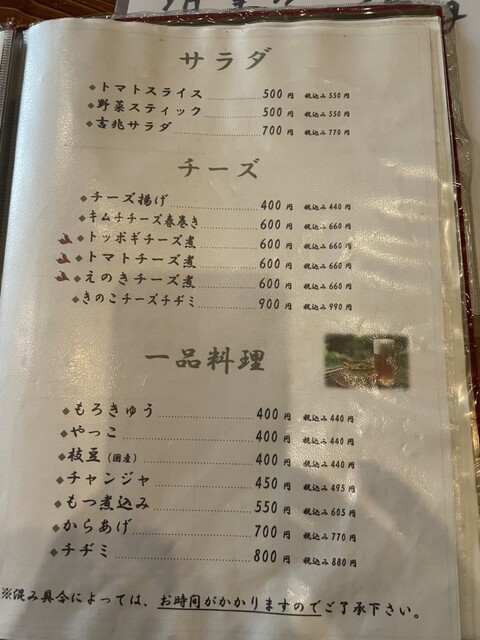 サラダ
◆トマトスライス 500円 税込み550円
◆野菜スティック 500円 税込み550円
◆吉兆サラダ 700円 税込み770円
チーズ
◆チーズ揚げ 400円 税込み440円
◆キムチチーズ春巻き 600円 税込み660円
◆トッポギチーズ煮 600円 税込み660円
◆トマトチーズ煮 600円 税込み660円
◆えのきチーズ煮 600円 税込み660円
◆きのこチーズチヂミ 900円 税込み990円
一品料理
◆もろきゅう 400円 税込み440円
◆やっこ 400円 税込み440円
◆枝豆(国産) 400円 税込み440円
◆チャンジャ 450円 税込み495円
◆もつ煮込み 550円 税込み605円
◆からあげ 700円 税込み770円
◆チヂミ 800円 税込み880円
※混み具合によっては、お時間がかかりますのでご了承下さい。